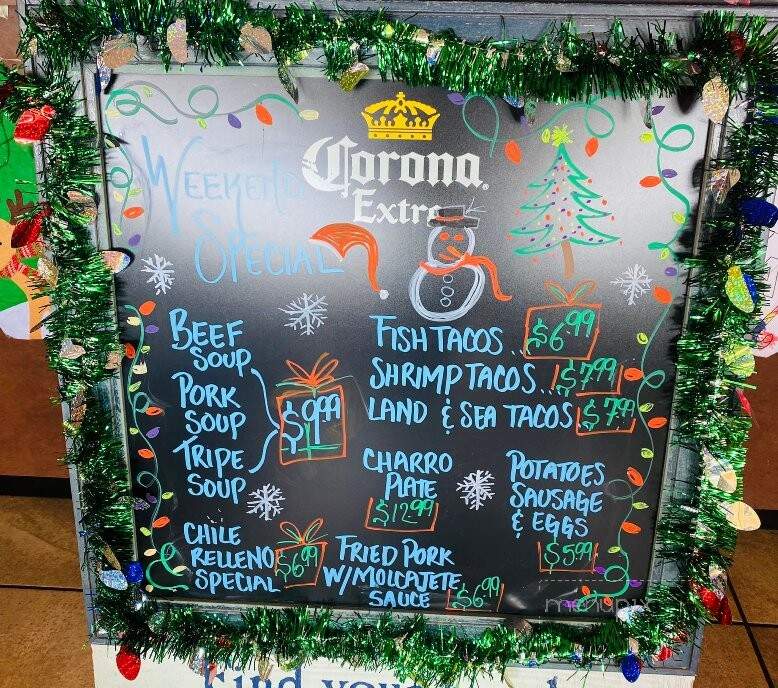 Corona
Extra
WEEKEND
SPECIAL
BEEF
SOUP
PORK
SOUP
TRIPE
SOUP
$9.99
FISH TACOS.. $6.99
SHRIMP TACOS... $7.99
LAND & SEA TACOS $7.99
CHARRO
PLATE
$12.99
POTATOES
SAUSAGE
& EGGS
$5.99
CHILE
RELLENO
SPECIAL
$6.99
FRIED PORK
W/MOLCAJETE
SAUCE $6.99
menupix
Find your